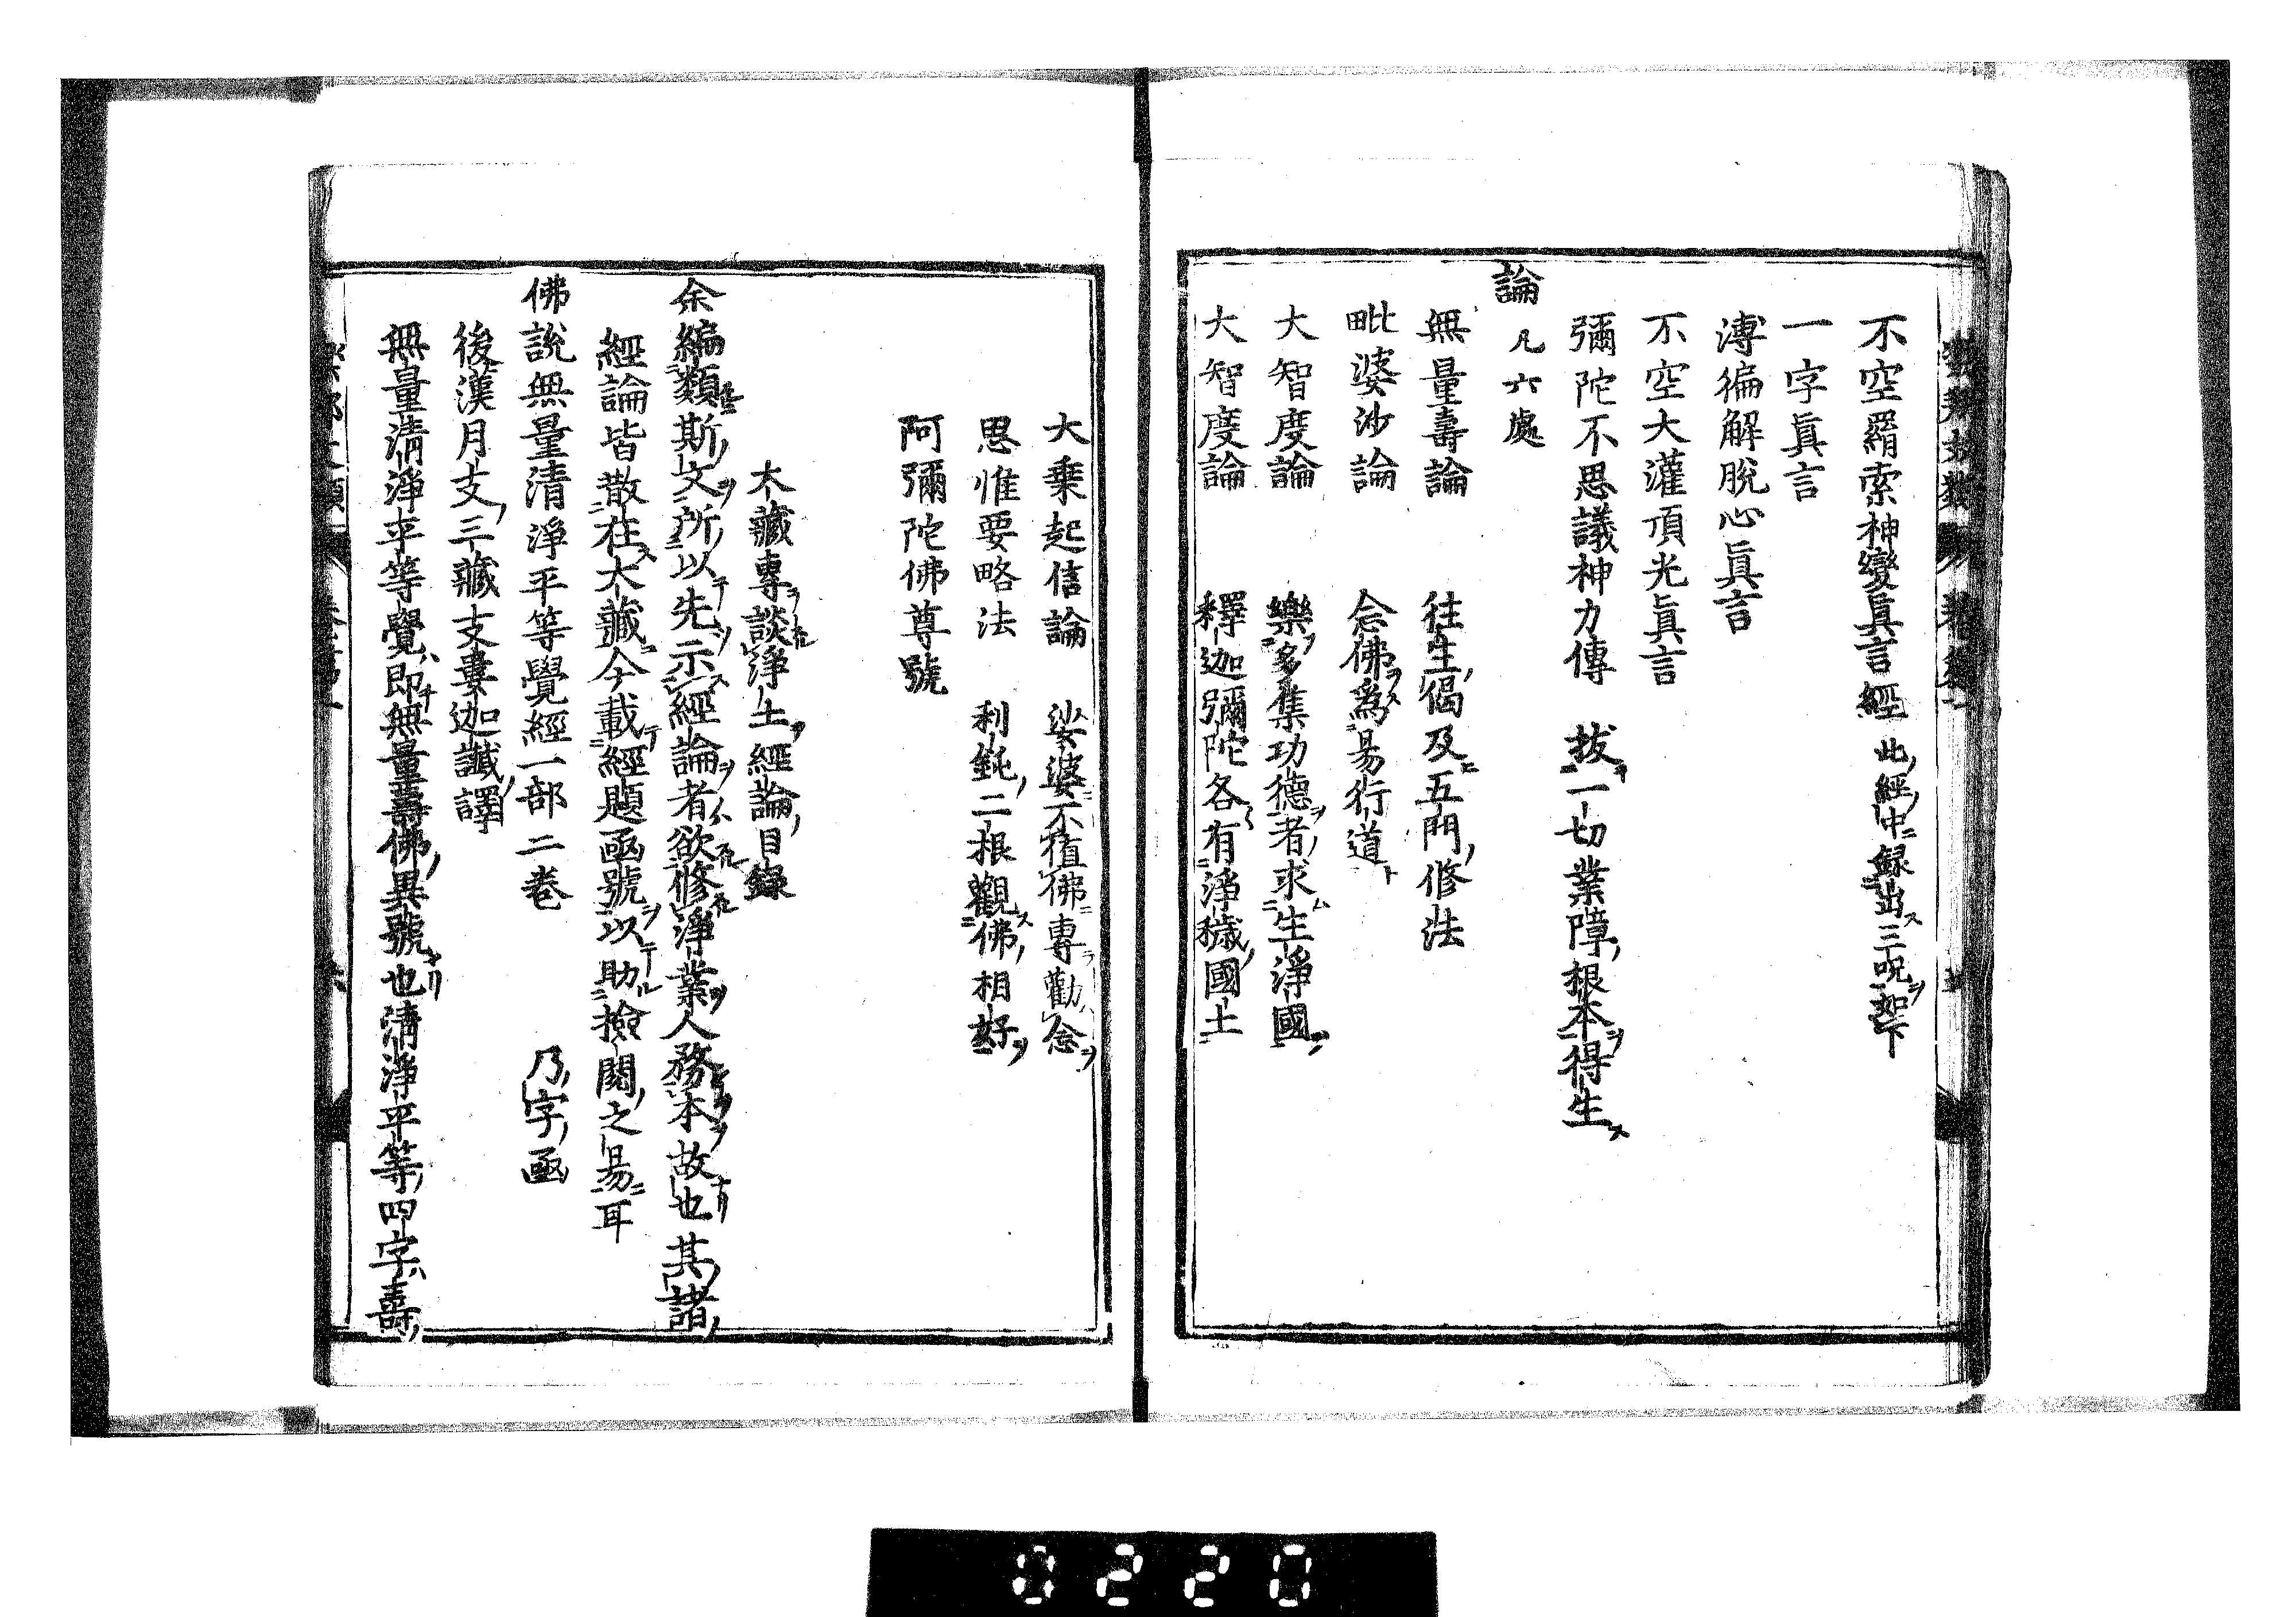 不空羂索神變真言經 此經中録出三呪如下
一字眞言
溥徧解脫心眞言
不空大灌頂光眞言
彌陀不思議神力傳 拔一切業障根本得生
論 凡六處
無量壽論 往生偈及五門修法
毗婆沙論 念佛爲易行道
大智度論 樂多集功德者求生淨國
大智度論 釋迦彌陀各有淨穢國土
大乗起信論 娑婆不値佛專勸念
思惟要略法 利鈍二根觀佛相好
阿彌陀佛尊號
大藏專談淨土經論目錄
余編類斯文所以先示經論者欲修淨業人務本故也其諸
經論皆散在大藏今載經題函號以助撿閱之易耳
佛說無量清淨平等覺經一部二卷 乃字函
後漢月支三藏支婁迦讖譯
無量淸淨平等覺即無量壽佛異號也淸淨平等四字壽
0220